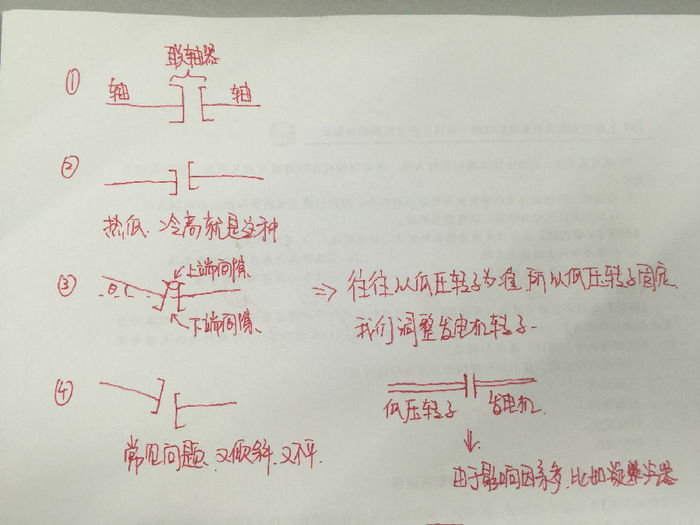 联轴器
① 轴 轴
②
热低、冷高就是这种
③ 上端间隙
下端间隙
⇒ 往往以低压转子为准,所以低压转子固定、
我们调整发电机转子.
④
常见问题、又倾斜、又不平.
低压转子 发电机
由于影响因素多、比如凝器